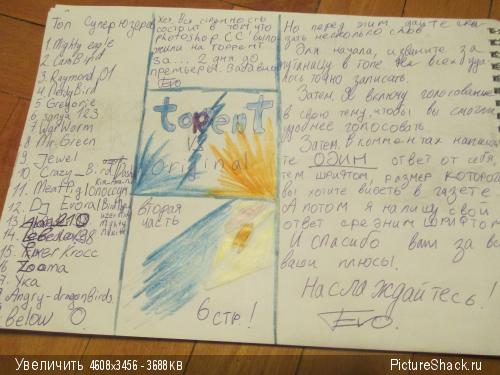 Топ Суперюзеров
1. Mighty eagle
2. CamBird
3. Raymond 01
4. NerdyBird
5. Gregorje
6. sanya 123
7. WarWorm
8. Mr. Green
9. Jewel
10. Crazy_Bird
11. Meatking
12. Dj Evoral
13.
14.
15. River Krocc
16 Zooma
17. Ука
Angry-dragonBirds.
below
Хех, вся странность
состоит в том что
Photoshop CC было
жили на торрент
за... 2 дня до
премьеры. Забавно
Evo
torrent
VS
original
вторая
часть
6 стр.!
Но перед этим дайте ска-
зать несколько слов.
Для начала, извините за
путаницу в топе
лось одно записать.
Затем. Я включу голосование
в свою тему, чтобы вы смогли
удобнее голосовать.
Затем, в комментах напиши-
те ОДИН ответ от себя,
тем шрифтом, размер которого
вы хотите видеть в газете
А потом я напишу свой
ответ средним шрифтом
И спасибо вам за все
ваши плюсы!
Наслаждайтесь!
Evo.
Увеличить 4608x3456 - 3688 кв
PictureShack.ru